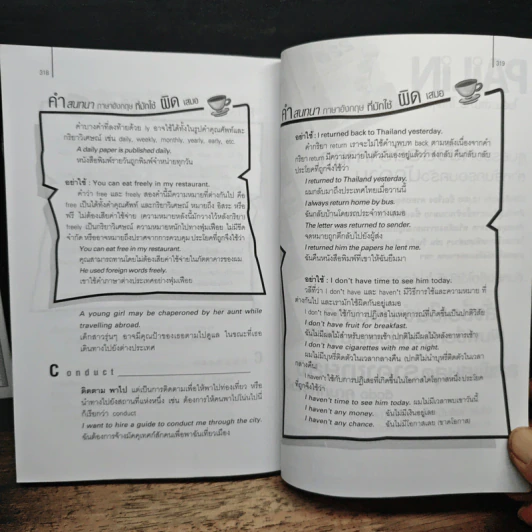 318
คำ สนทนา ภาษาอังกฤษ ที่มักใช้ ผิด เสมอ
คำบางคำที่ลงท้ายด้วย ly อาจใช้ได้ทั้งในรูปคำคุณศัพท์และ
กริยาวิเศษณ์ เช่น daily, weekly, monthly, yearly, early, etc.
A daily paper is published daily.
หนังสือพิมพ์รายวันถูกพิมพ์จำหน่ายทุกวัน
อย่าใช้ : You can eat freely in my restaurant.
คำว่า free และ freely สองคำนี้มีความหมายที่ต่างกันไป คือ
free เป็นได้ทั้งคำคุณศัพท์ และกริยาวิเศษณ์ หมายถึง อิสระ หรือ
ฟรี ไม่ต้องเสียค่าใช้จ่าย
freely เป็นกริยาวิเศษณ์
You can eat free in my restaurant.
คุณสามารถทานโดยไม่ต้องเสียค่าใช้จ่ายในภัตตาคารของผม
He used foreign words freely.
เขาใช้คำภาษาต่างประเทศอย่างฟุ่มเฟือย
A young girl may be chaperoned by her aunt while
travelling abroad.
เด็กสาวรุ่นๆ อาจมีคุณป้าของเธอตามไปดูแล ในขณะที่เธอ
เดินทางไปยังต่างประเทศ
Conduct
ติดตาม พาไป แต่เป็นการติดตามเพื่อให้พาไปท่องเที่ยว หรือ
นำทางไปยังสถานที่แห่งหนึ่ง เช่น ต้องการให้คนพาไปโน่นไปนี่
ก็เรียกว่า conduct
I want to hire a guide to conduct me through the city.
ฉันต้องการจ้างมัคคุเทศก์สักคนเพื่อพาฉันเที่ยวเมือง
319
คำ สนทนา ภาษาอังกฤษ ที่มักใช้ ผิด เสมอ
อย่าใช้ : I returned back to Thailand yesterday.
คำกริยา return เราจะไม่ใช้คำบุพบท back ตามหลังเนื่องจากคำ
กริยา return มีความหมายในตัวมันเองอยู่แล้วว่า ส่งกลับ คืนกลับ กลับ
ประโยคที่ถูกจึงใช้ว่า
I returned to Thailand yesterday.
ผมกลับมาถึงประเทศไทยเมื่อวานนี้
I always return home by bus.
ฉันกลับบ้านโดยรถประจำทางเสมอ
The letter was returned to sender.
จดหมายถูกตีกลับไปยังผู้ส่ง
I returned him the papers he lent me.
ฉันคืนหนังสือพิมพ์ที่เขาให้ฉันยืมมา
อย่าใช้ : I don't have time to see him today.
วลีที่ว่า I don't have และ haven't มีวิธีการใช้และความหมาย ที่
ต่างกันไป และเรามักใช้ผิดกันอยู่เสมอ
I don't have ใช้กับการปฏิเสธในเหตุการณ์ที่เกิดขึ้นเป็นปกติวิสัย
I don't have fruit for breakfast.
I don't have cigarettes with me at night.
I haven't ใช้กับการปฏิเสธที่เกิดขึ้นในโอกาสใดโอกาสหนึ่ง ประโยค
ที่ถูกจึงใช้ว่า
I haven't time to see him today. ผมไม่มีเวลาพบเขาวันนี้
I haven't any money. ฉันไม่มีเงินอยู่เลย
I haven't any chance. ฉันไม่มีโอกาสเลย